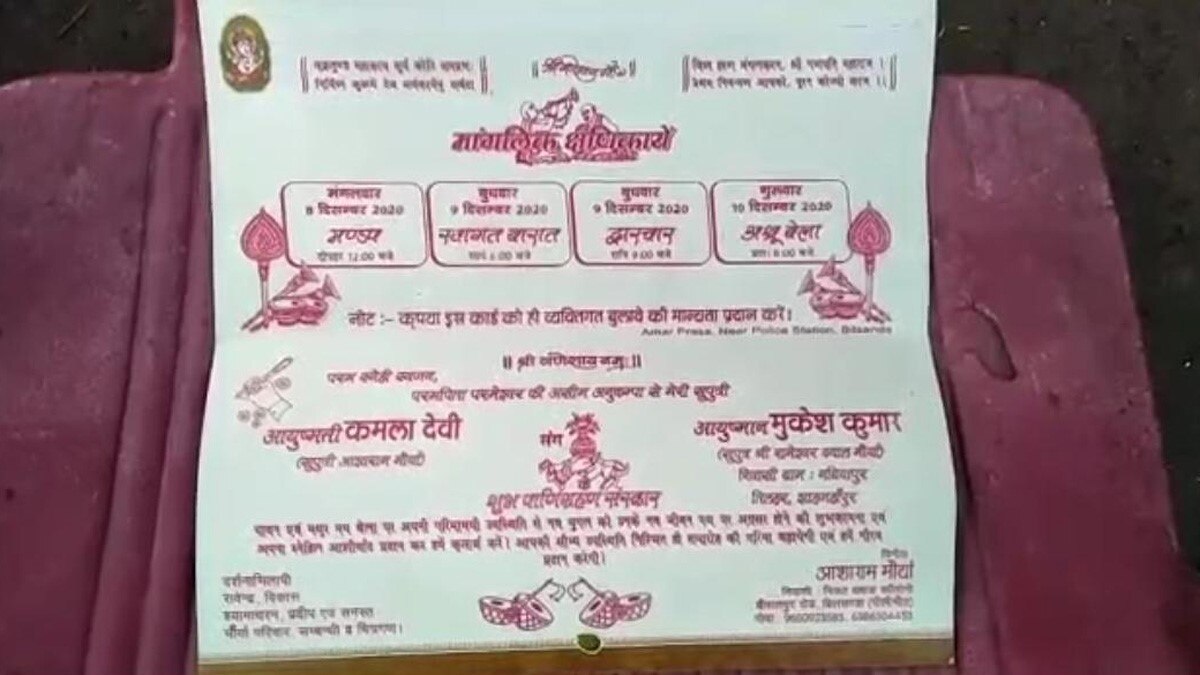 वक्रतुण्ड महाकाय सूर्य कोटि समप्रभः
निर्विघ्न कुरूमे देव सर्वकार्येषु सर्वदा
विघ्न हरण मंगलकरण, श्री गणपति महाराज ।
प्रथम निमन्त्रण आपको, पूरण कीज्यो काज ।।
मांगलिक क्षणिकायें
मंगलवार
8 दिसम्बर 2020
मण्डप
दोपहर 12:00 बजे
बुधवार
9 दिसम्बर 2020
स्वागत बारात
सायं 6:00 बजे
बुधवार
9 दिसम्बर 2020
द्वारचार
रात्रि 9:00 बजे
गुरुवार
10 दिसम्बर 2020
अश्रु बेला
प्रातः 8:00 बजे
नोट :- कृपया इस कार्ड को ही व्यक्तिगत बुलावे की मान्यता प्रदान करें।
Amar Press, Near Police Station, Bilsanda
|| श्री गणेशाय नमः ||
परम स्नेही स्वजन,
परमपिता परमेश्वर की असीम अनुकम्पा से मेरी सुपुत्री
आयुष्मती कमला देवी
(सुपुत्री आशाराम मौर्या)
संग
आयुष्मान मुकेश कुमार
(सुपुत्र श्री रामेश्वर दयाल मौर्या)
निवासी ग्राम :
तिलहर, शाहजहाँपुर
के
शुभ पाणिग्रहण संस्कार
पावन एवं मधुर मय बेला पर अपनी गरिमामयी उपस्थिति से नव युगल को उनके नव जीवन पथ पर अग्रसर होने की शुभकामना एवं
अपना स्नेहिल आशीर्वाद प्रदान कर हमें कृतार्थ करें। आपकी सौम्य उपस्थिति निश्चित ही समारोह की गरिमा बढ़ायेगी एवं हमें गौरव
प्रदान करेगी।
दर्शनाभिलाषी
रावेन्द्र, विकास
श्यामाचरन, प्रदीप एवं समस्त
मौर्या परिवार, सम्बन्धी व मित्रगण।
विनीत
आशाराम मौर्या
निवासी :
रोड, बिलसण्डा (पीलीभीत)